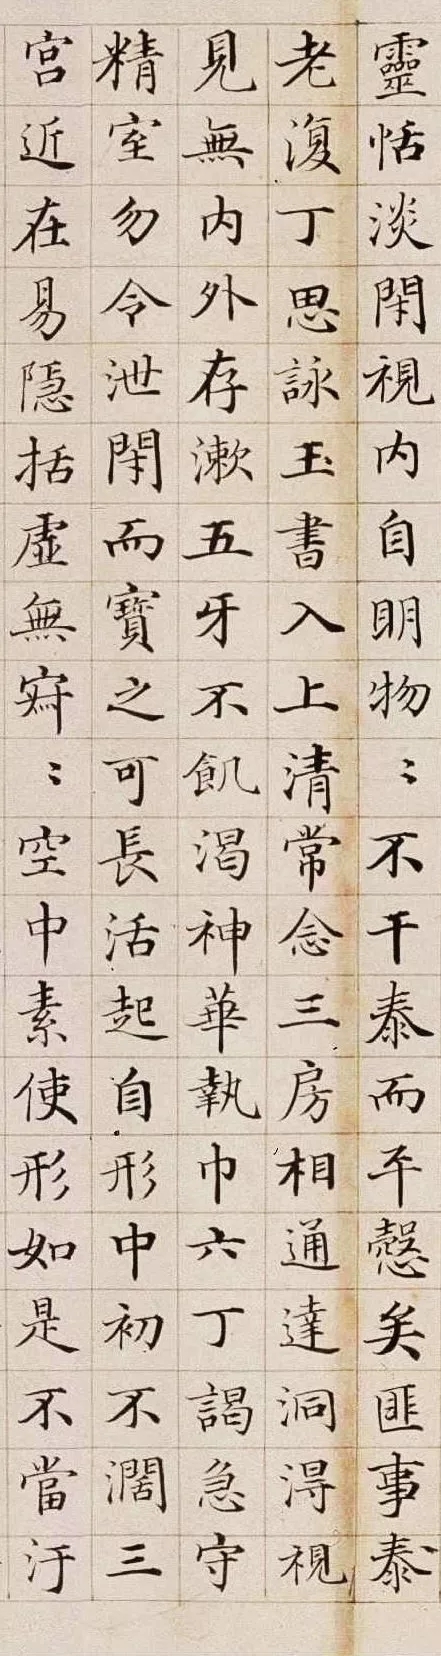 靈恬淡閇視内自眀物〻不干泰而平愨矣匪事泰
老復丁思詠玉書入上清常念三房相通達洞淂視
見無内外存漱五牙不飢渴神華執巾六丁謁急守
精室勿令泄閇而寶之可長活起自形中初不濶三
宮近在易隱括虛無寂〻空中素使形如是不當汙